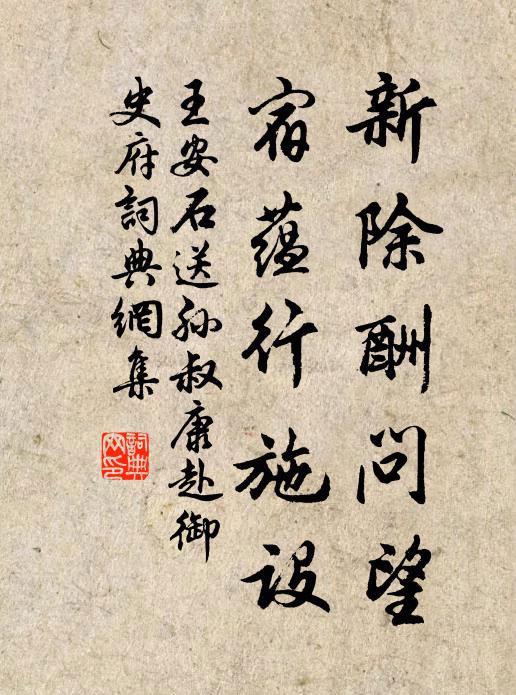 新除酬问望
宿蕴行施設
王安石送孙叔康赴御
史府詞典網集
詞典
网印